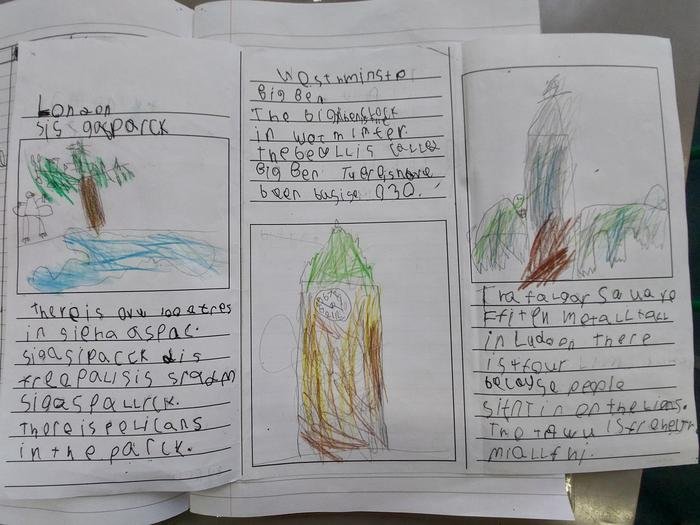 London
sis gasparck
there is ovu 100 atres
in siena aspac.
sigasiparck is
free paulsis sradm
sigaspallrck.
There is pelicans
in the parck.
Westminste
Big Ben
The big clock
in westminster.
the beell is called
Big Ben Tuere is hove
been busise 930.
Trafalgar Square
Efiten metall tall
in Ludoen there
is four
because people
sitnt in on the lions.
The is